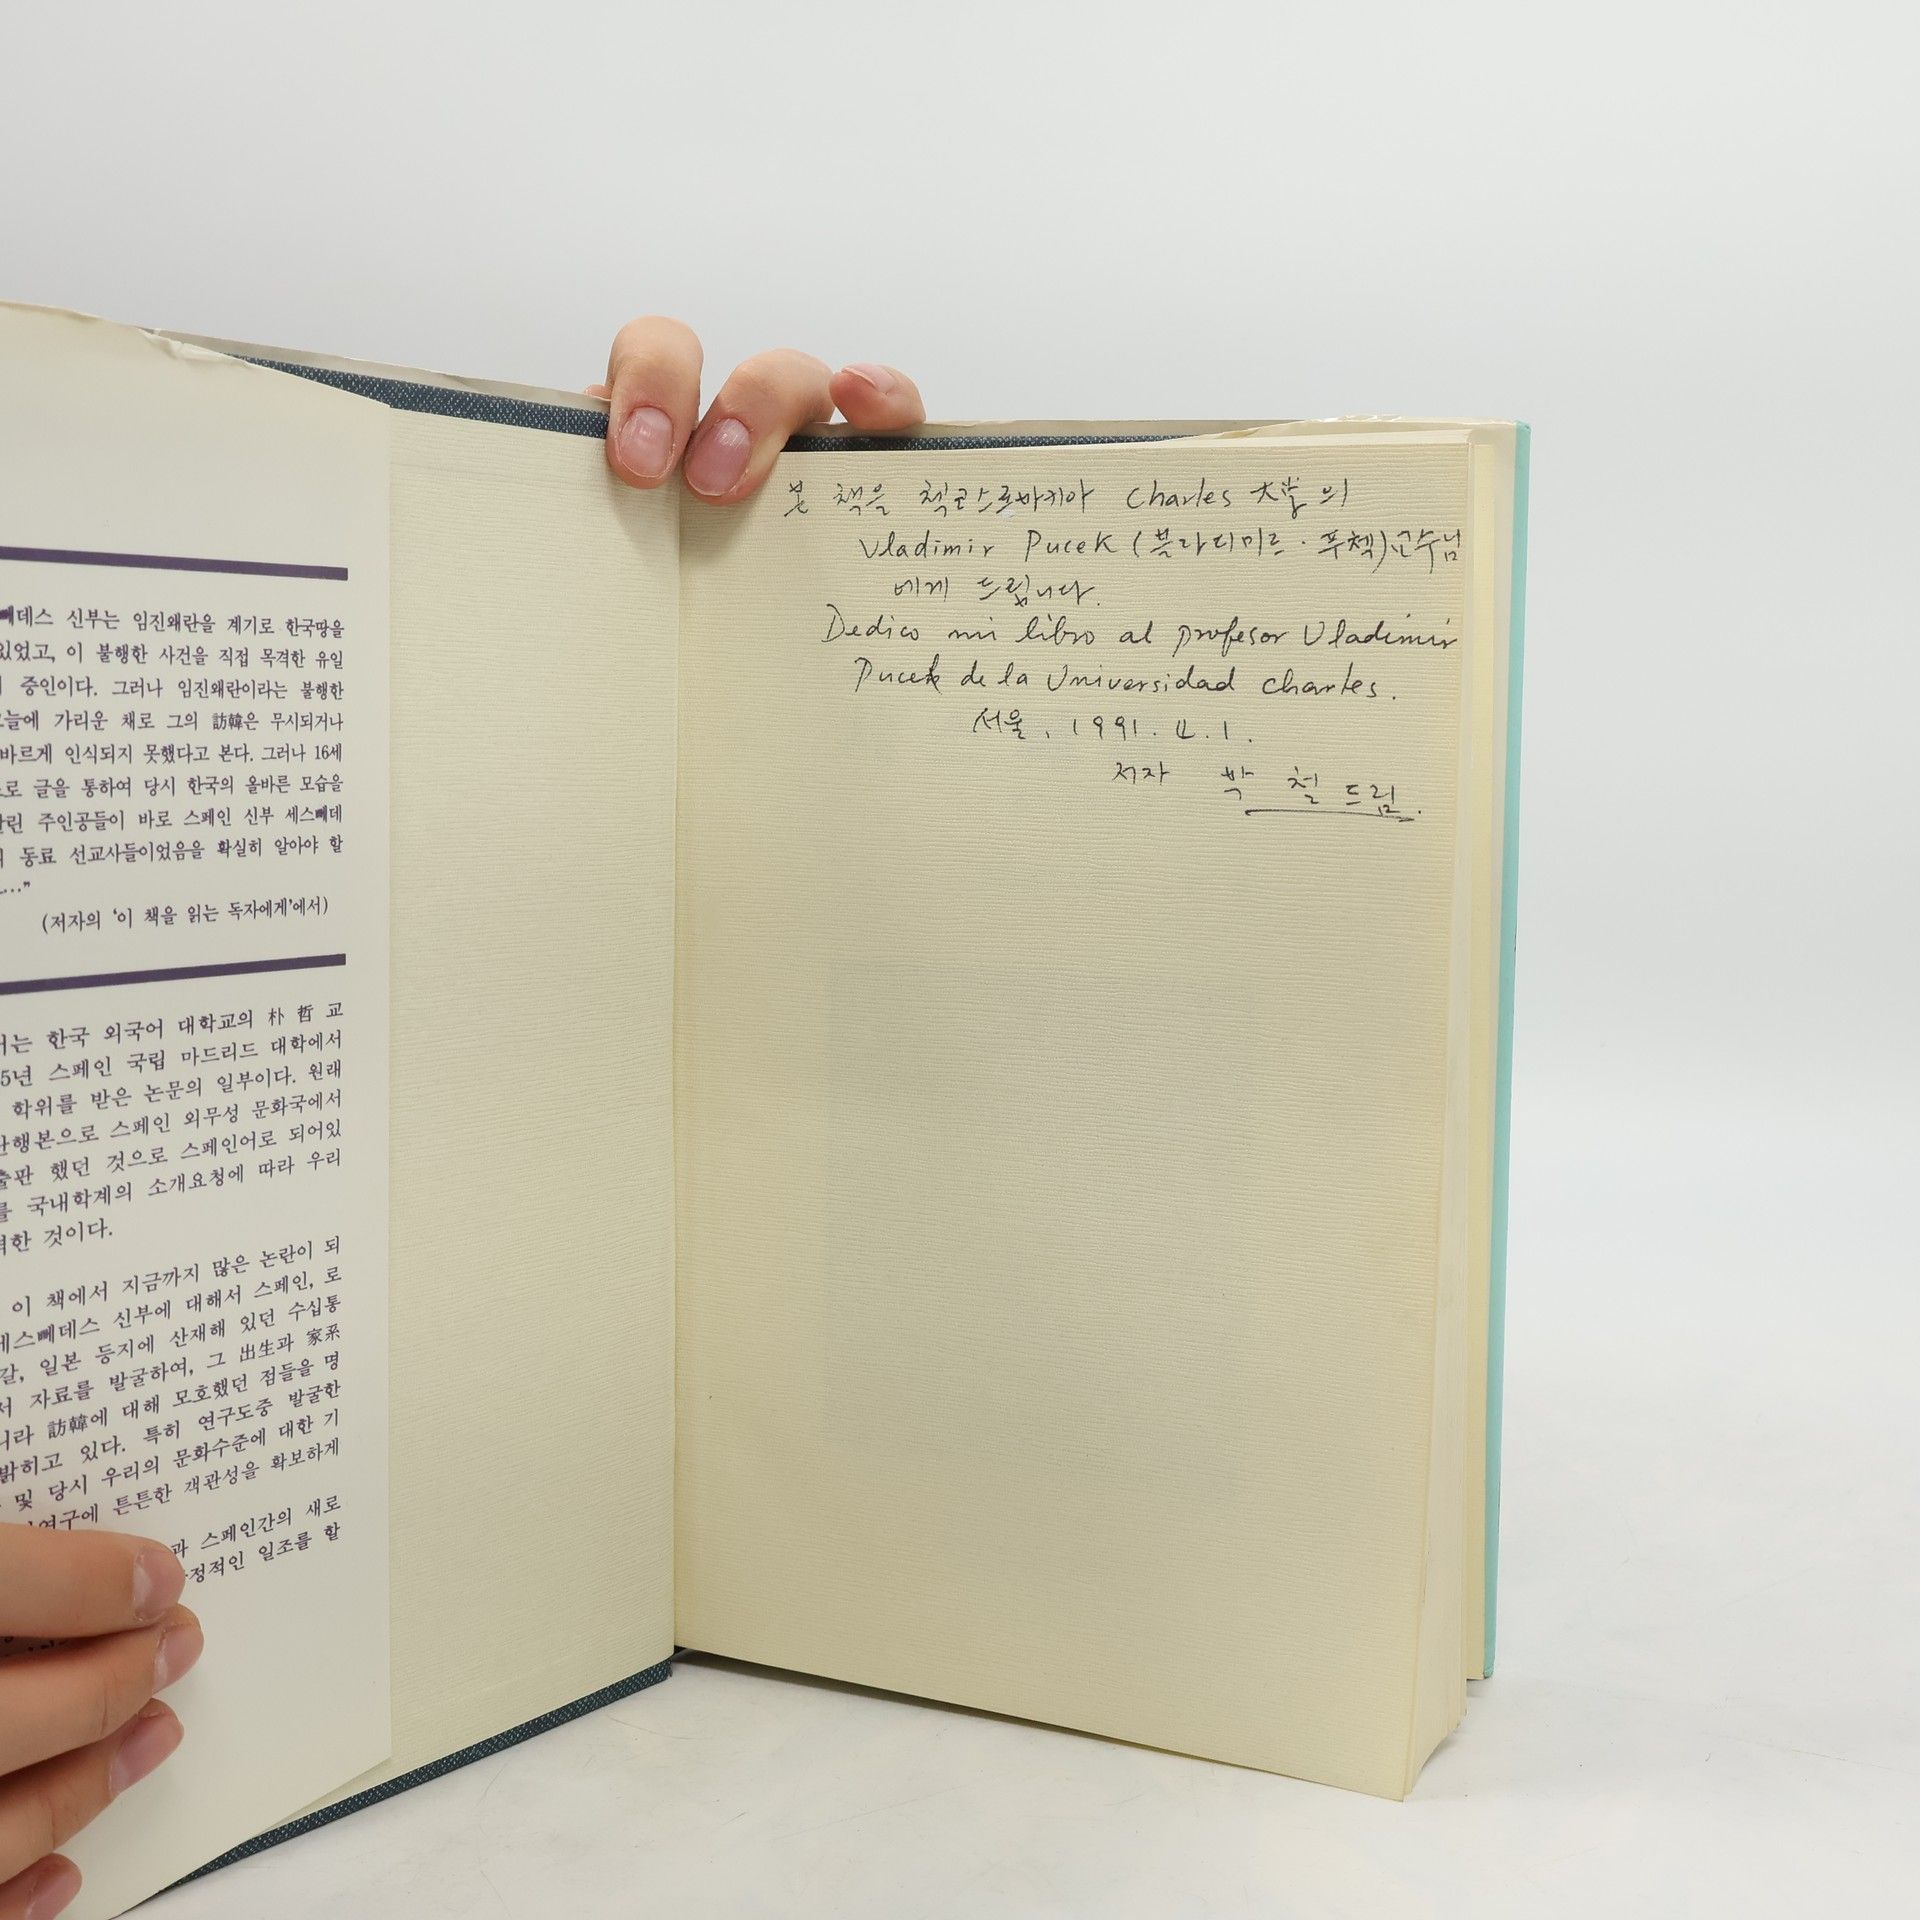 뻬데스 신부는 임진왜란을 계기로 한국땅을
있었고, 이 불행한 사건을 직접 목격한 유일
증인이다. 그러나 임진왜란이라는 불행한
그늘에 가리운 채로 그의 訪韓은 무시되거나
바르게 인식되지 못했다고 본다. 그러나 16세
로 글을 통하여 당시 한국의 올바른 모습을
린 주인공들이 바로 스페인 신부 세스뻬데
동료 선교사들이었음을 확실히 알아야 할
…”
(저자의 ‘이 책을 읽는 독자에게’에서)
는 한국 외국어 대학교의 朴 哲 교
5년 스페인 국립 마드리드 대학에서
학위를 받은 논문의 일부이다. 원래
단행본으로 스페인 외무성 문화국에서
출판 했던 것으로 스페인어로 되어있
를 국내학계의 소개요청에 따라 우리
한 것이다.
이 책에서 지금까지 많은 논란이 되
세스뻬데스 신부에 대해서 스페인, 로
갈, 일본 등지에 산재해 있던 수십통
서 자료를 발굴하여, 그 出生과 家系
니라 訪韓에 대해 모호했던 점들을 명
밝히고 있다. 특히 연구도중 발굴한
및 당시 우리의 문화수준에 대한 기
연구에 튼튼한 객관성을 확보하게
과 스페인간의 새로
정적인 일조를 할
본 책을 첵코스로바키아 Charles 大学의
Vladimir Pucek (블라디미르 · 푸첵)교수님
에게 드립니다.
Dedico mi libro al profesor Vladimir
Pucek de la Universidad Charles.
서울, 1991. 4. 1.
저자 박 철 드림.